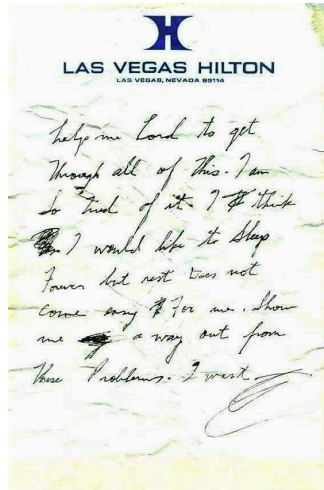 LAS VEGAS HILTON
LAS VEGAS, NEVADA 89114
help me Lord to get
through all of this. I am
So tired of it. I think
I would like to Sleep
Forever but rest Does not
come easy For me. Show
me a way out from
these Problems. I want